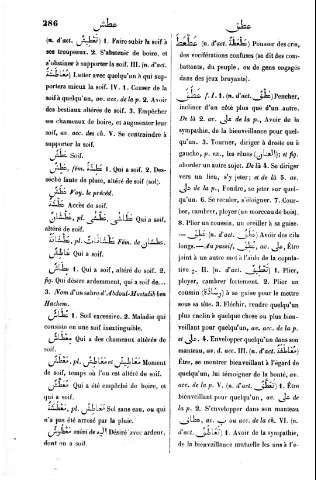 286
عطش
عطف
(n. d'act. تَعْطِيش) 1. Faire subir la soif à
ses troupeaux. 2. S'abstenir de boire, et
s'obstiner à supporter la soif. III. (n. d'act.
مُعَاطَشَة) Lutter avec quelqu'un à qui sup-
portera mieux la soif. IV. 1. Causer de la
soif à quelqu'un, av. acc. de la p. 2. Avoir
des bestiaux altérés de soif. 3. Empêcher
ses chameaux de boire, et augmenter leur
soif, av. acc. des ch. V. Se contraindre à
supporter la soif.
عَطَش Soif.
عَطِش, fém. عَطِشَة 1. Qui a soif. 2. Des-
séché faute de pluie, altéré de soif (sol).
عَطُش Voy. le précéd.
عَطْشَة Accès de soif.
عَطْشَان, pl. عَطْشَى, عِطَاش Qui a soif,
altéré de soif.
عَطْشَانَة, pl. عَطْشَانَات Fém. de عَطْشَان.
عَاطِش Qui a soif.
عَطْشَان 1. Qui a soif, altéré de soif. 2.
fig. Qui désire ardemment, qui a soif de...
3. Nom d'un sabre d'Abdoul-Mottalib ben
Hachem.
عُطَاش 1. Soif excessive. 2. Maladie qui
consiste en une soif inextinguible.
مُعْطِش Qui a des chameaux altérés de
soif.
مَعْطَش, pl. مَعَاطِش Moment
de soif, temps où l'on est altéré de soif.
مُعَطَّش Qui a été empêché de boire, et
qui a soif.
مَعْطَشَة, pl. مَعَاطِش Sol sans eau, ou qui
n'a pas été arrosé par la pluie.
مَعْطُوش suivi de اليه Désiré avec ardeur,
dont on a soif.
عَطْعَطَ (n. d'act. عَطْعَطَة) Pousser des cris,
des vociférations confuses (se dit des com-
battants, du peuple, ou de gens engagés
dans des jeux bruyants).
عَطَفَ f. I. 1. (n. d'act. عَطْف) Pencher,
incliner d'un côté plus que d'un autre.
De là 2. av. على de la p., Avoir de la
sympathie, de la bienveillance pour quel-
qu'un. 3. Tourner, diriger à droite ou à
gauche, p. ex., les rênes (العنان); et fig.
aborder un autre sujet. De là 4. Se diriger
vers un lieu, s'y jeter; et de là 5. av.
على de la p., Fondre, se jeter sur quel-
qu'un. 6. Se reculer, s'éloigner. 7. Cour-
ber, cambrer, ployer (un morceau de bois).
8. Plier un coussin, un oreiller à sa guise.
— عَطِفَ (n. d'act. عَطَف) Avoir des cils
longs. — Au passif, عُطِفَ, av. على, Être
joint à un autre mot à l'aide de la copula-
tive و. II. (n. d'act. تَعْطِيف) 1. Plier,
ployer, cambrer fortement. 2. Plier un
coussin (وسادة) à sa guise pour le mettre
sous sa tête. 3. Fléchir, rendre quelqu'un
plus enclin à quelque chose ou plus bien-
veillant pour quelqu'un, av. acc. de la p.
et على. 4. Envelopper quelqu'un dans son
manteau, av. d. acc. III. (n. d'act. مُعَاطَفَة)
Être, se montrer bienveillant à l'égard de
quelqu'un, lui témoigner de la bonté, av.
acc. de la p. V. (n. d'act. تَعَطُّف) 1. Être
bienveillant pour quelqu'un, av. على de
la p. 2. S'envelopper dans son manteau
عطاف, av. ب ou acc. de la ch. VI. (n.
d'act. تَعَاطُف) 1. Avoir de la sympathie,
de la bienveillance mutuelle les uns à l'é-